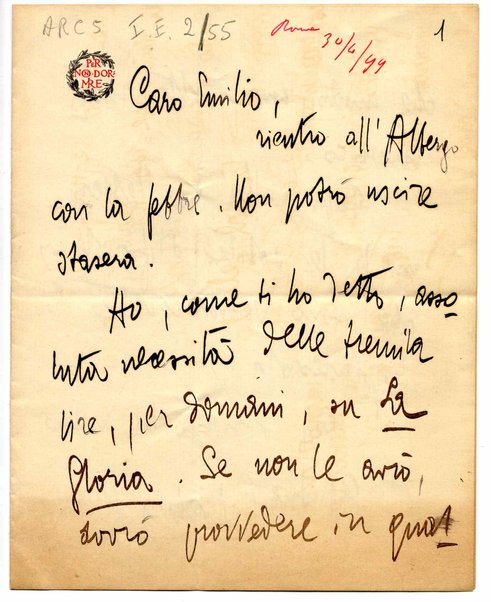 ARC 5 I.E. 2/55
Roma
30/4/99
1
PER
NON DOR
MIRE
Caro Emilio,
rientro all'Albergo
con la febbre. Non potrò uscire
stasera.
Ho, come ti ho detto, asso
luta necessità delle tremila
lire, per domani, su La
Gloria. Se non le avrò,
dovrò provvedere in qual